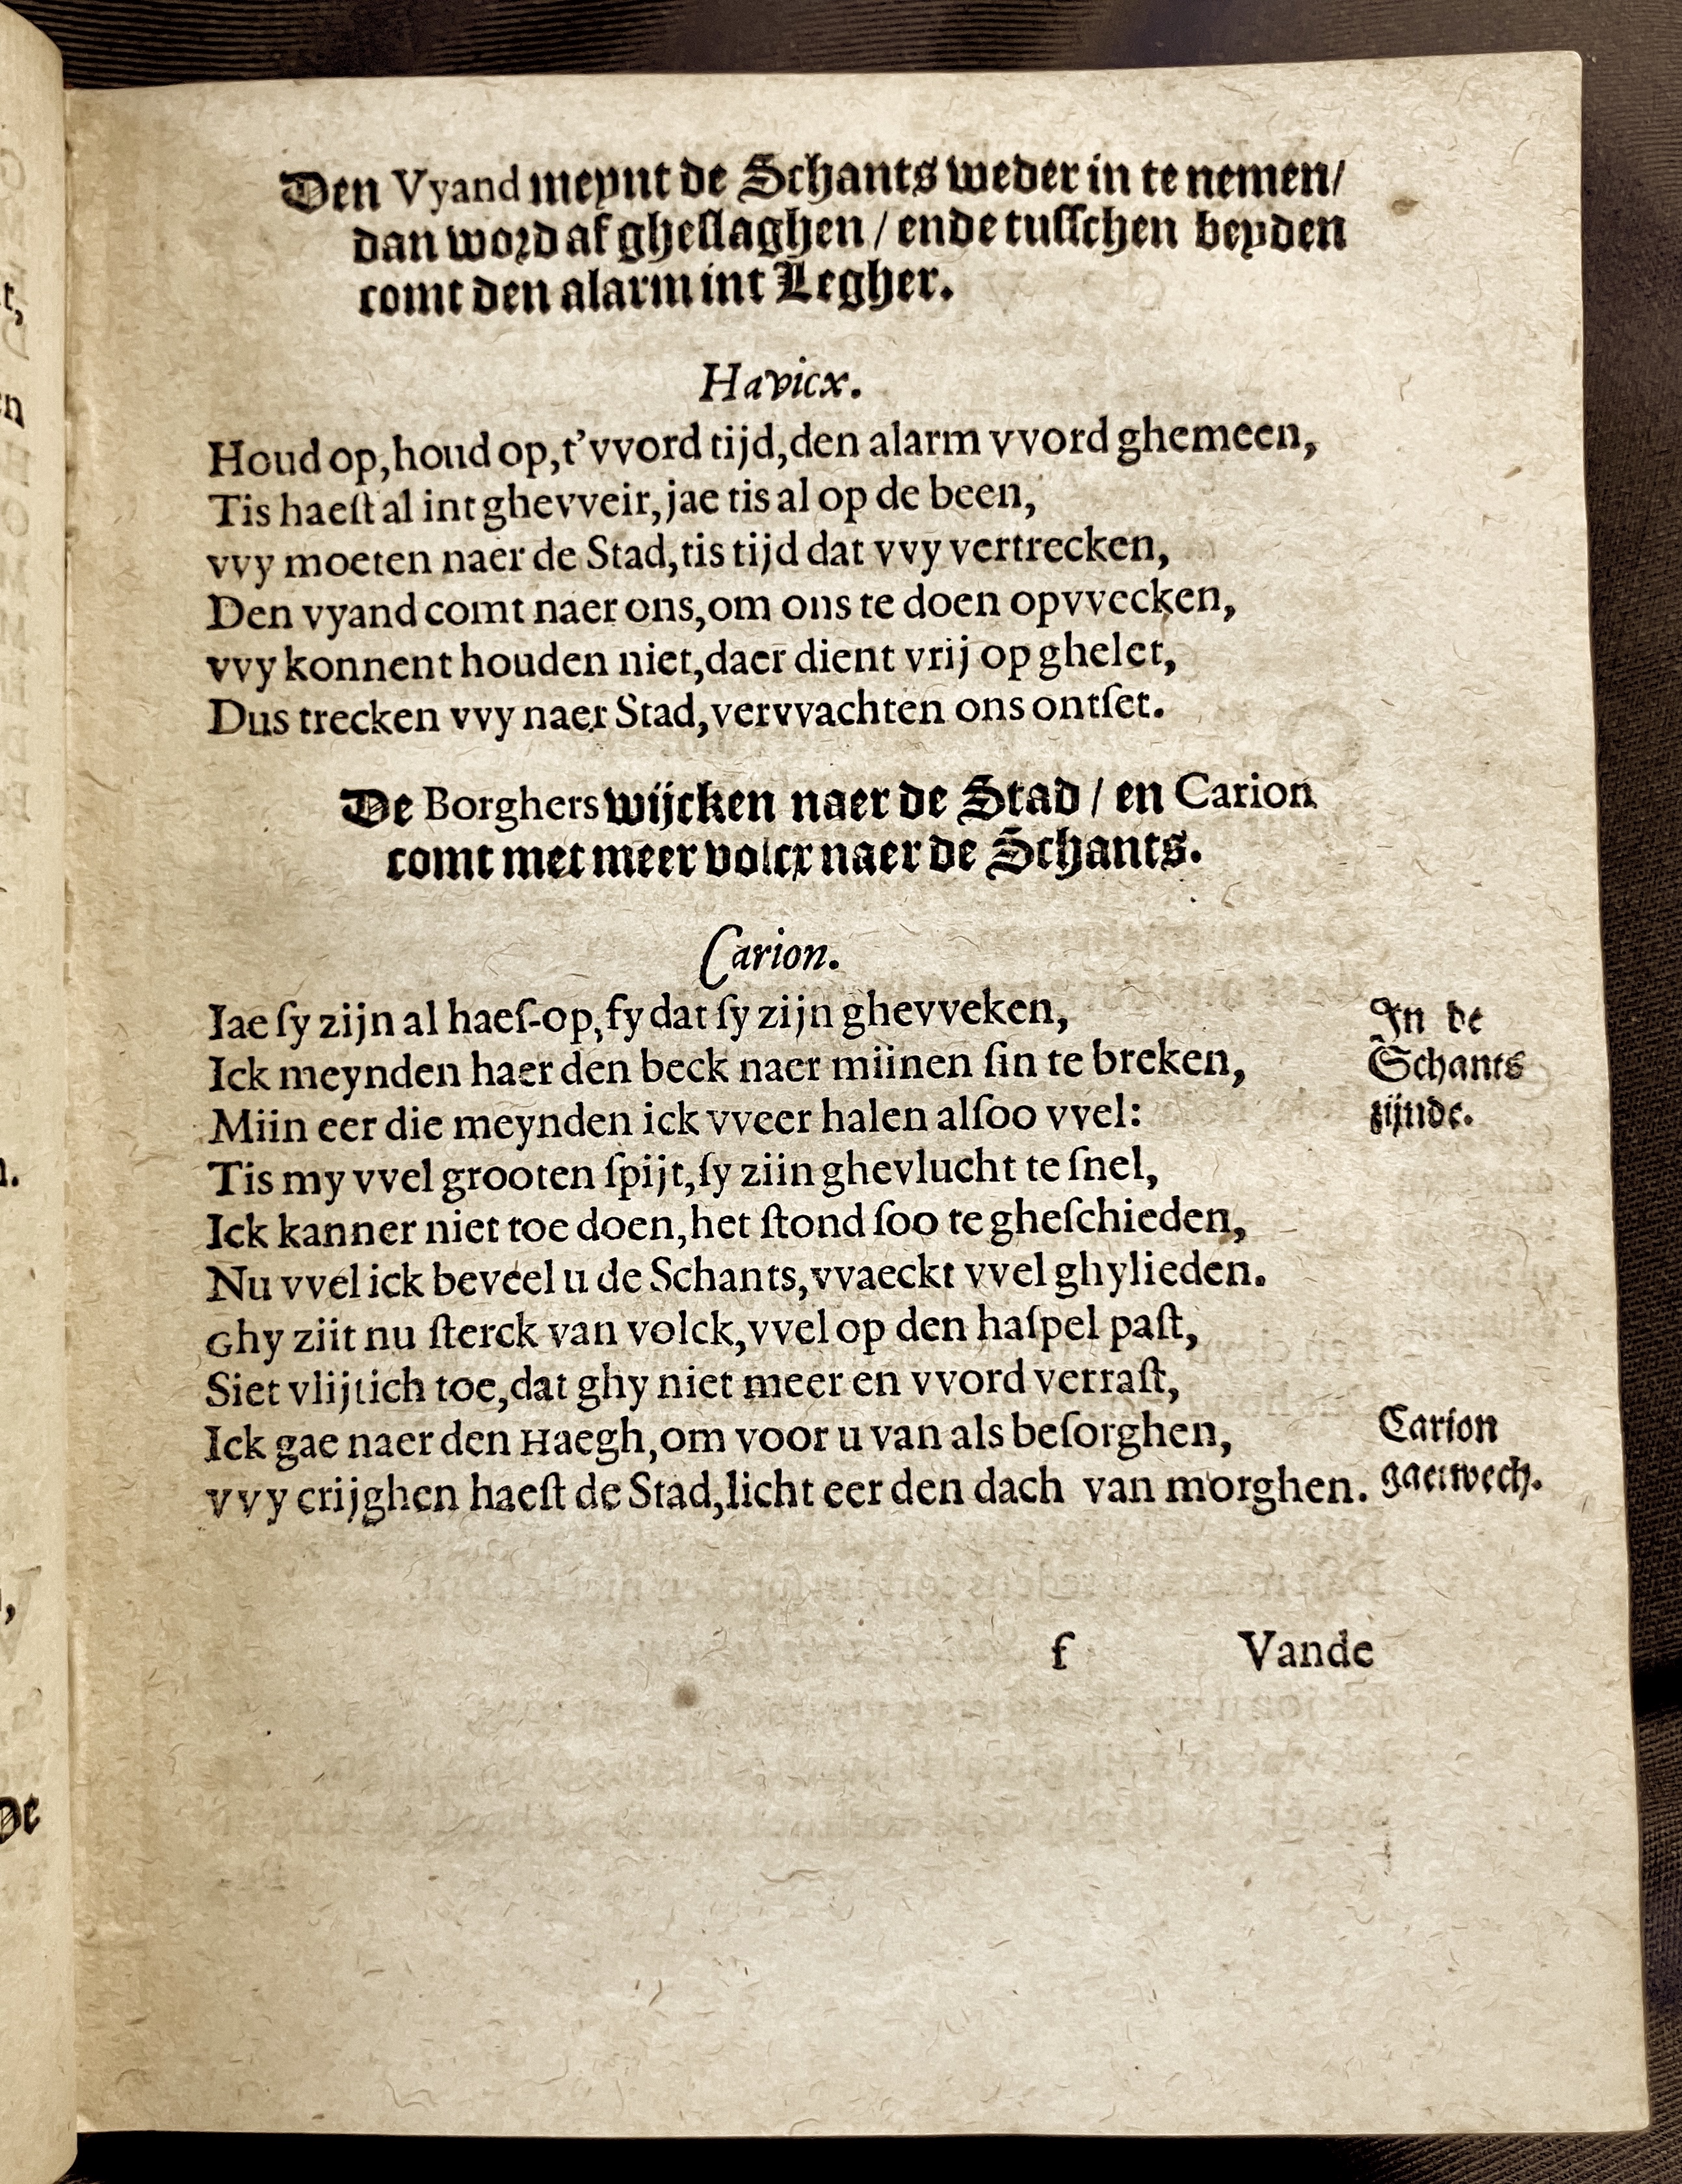 Den Vyand meynt de Schants weder in te nemen/
dan word af gheslaghen / ende tusschen beyden
comt den alarm int Legher.
Havicx.
Houd op, houd op, t'vvord tijd, den alarm vvord ghemeen,
Tis haeſt al int ghevveir, jae tis al op de been,
vvy moeten naer de Stad, tis tijd dat vvy vertrecken,
Den vyand comt naer ons, om ons te doen opvvecken,
vvy konnent houden niet, daer dient vrij op ghelet,
Dus trecken vvy naer Stad, vervvachten ons ontſet.
De Borghers wijcken naer de Stad / en Carion
comt met meer volcx naer de Schants.
Carion.
Iae ſy zijn al haeſ-op, fy dat ſy zijn ghevveken,
Ick meynden haer den beck naer miinen ſin te breken,
Miin eer die meynden ick vveer halen alſoo vvel:
Tis my vvel grooten ſpijt, ſy ziin ghevlucht te ſnel,
Ick kanner niet toe doen, het ſtond ſoo te gheſchieden,
Nu vvel ick beveel u de Schants, vvaeckt vvel ghylieden.
Ghy ziit nu ſterck van volck, vvel op den haſpel paſt,
Siet vlijtich toe, dat ghy niet meer en vvord verraſt,
Ick gae naer den Haegh, om voor u van als beſorghen,
vvy crijghen haeſt de Stad, licht eer den dach van morghen.
In de
Schants
zijnde.
Carion
gaet wech.
f Vande